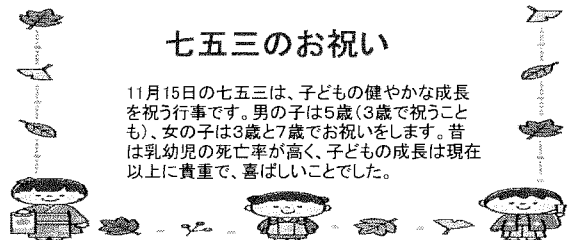 七五三のお祝い
11月15日の七五三は、子どもの健やかな成長
を祝う行事です。男の子は5歳(3歳で祝うこと
も)、女の子は3歳と7歳でお祝いをします。昔
は乳幼児の死亡率が高く、子どもの成長は現在
以上に貴重で、喜ばしいことでした。